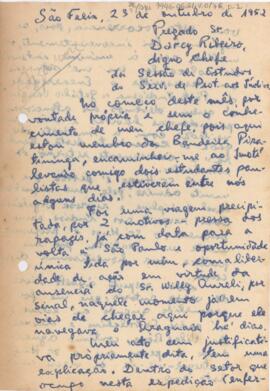 São Felix, 23 de outubro de 1952
Prezado Sr.
Darcy Ribeiro,
digno Chefe
da Sessão de Estudos
do Serv. de Prot. aos Índios
No começo deste mês, por
vontade própria e sem o conhe-
cimento de meu chefe, pois aqui
estou membro da Bandeira Pira-
tininga, encaminhei-me ao
levando comigo dois estudantes pau-
listas que estiveram entre nós
alguns dias.
Foi uma viagem precipi-
tada, por 2 motivos - pressa dos
rapazes já com data para a
volta a São Paulo e oportunidade
única tida por mim, com a liber-
dade de ação em virtude da
ausencia do Sr. Willy Aureli, por
sinal, naquele momento já em
vias de chegar aqui porque ele
navegava o Araguaia há dias.
Meu ato sem justificati-
va propriamente dita, tem uma
explicação. Dentro do setor que
ocupo nesta expedição